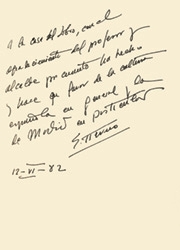 A la casa del libro, con el
agradecimiento del profesor y
alcalde por cuanto ha hecho
y hace en favor de la cultura
española en general y la
de Madrid en particular
12-VI-82